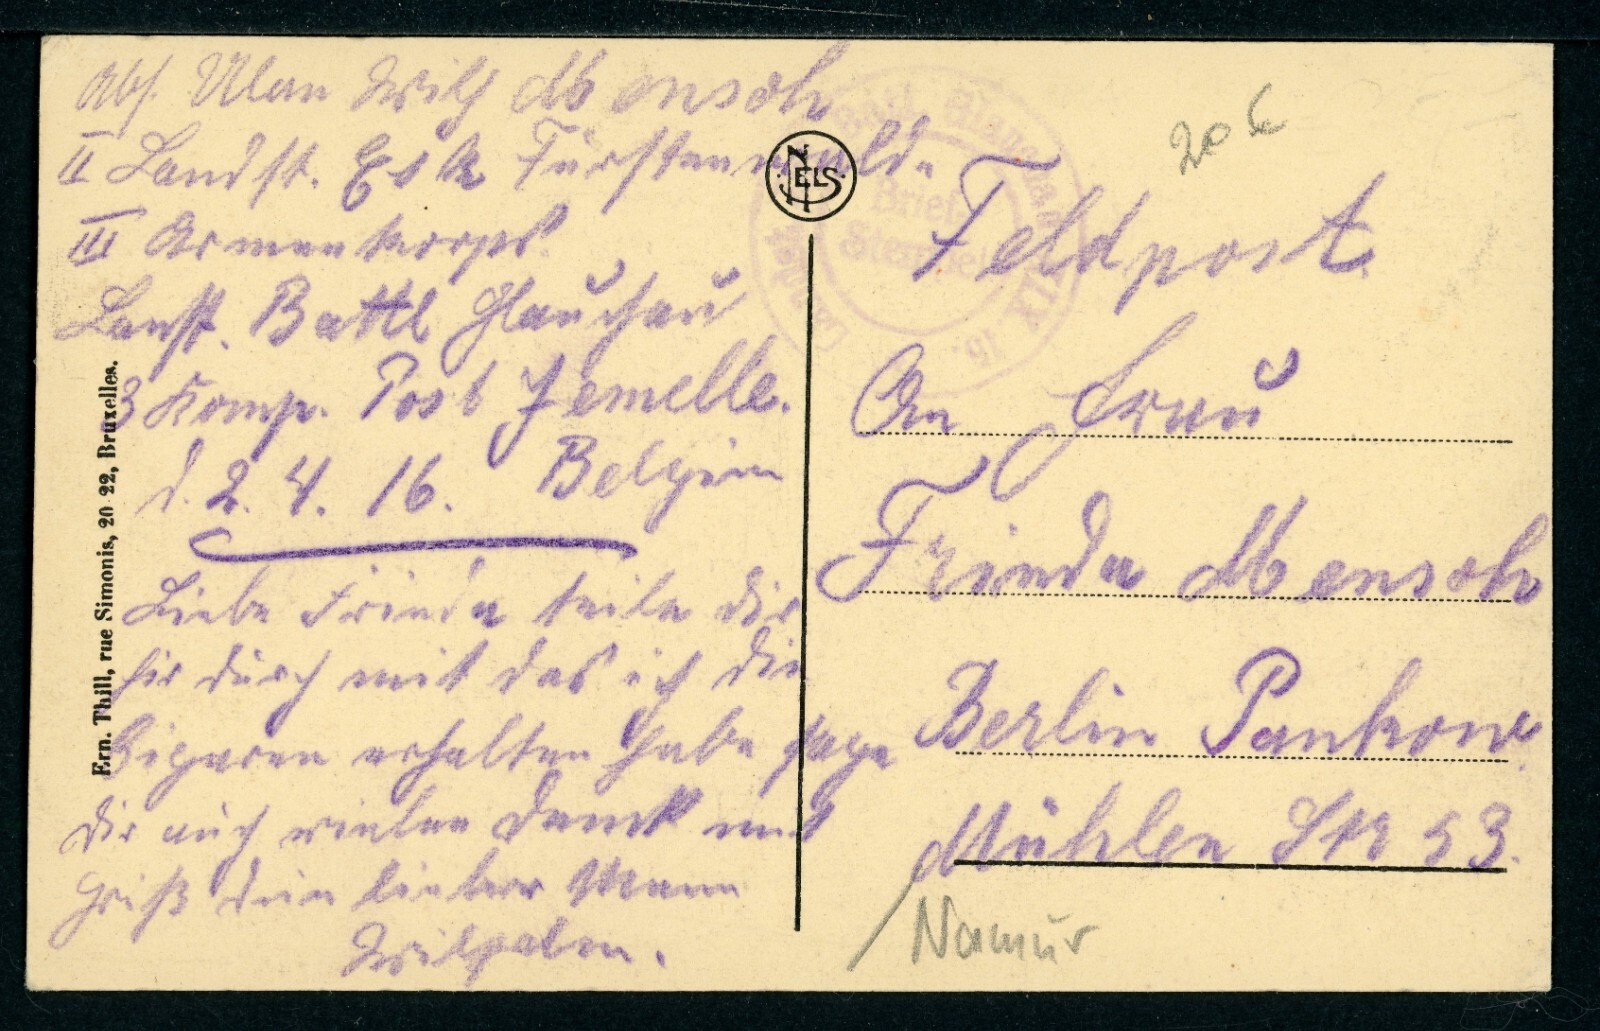 Abs. Ulan Wilh Absensoh
II Landst. Esk Fürstenwalde
III Armeekorps.
Lanst. Battl Glauchau
3 Komp. Post Jemelle.
d. 2. 4. 16. Belgien
Liebe Frieda teile dir
hir durch mit das ich die
Zigaren erhalten habe sage
dir auch vielen Danck und
Gruß dein lieber Mann
Wilhelm.
Ern. Thill, rue Simonis, 20-22, Bruxelles.
NELS
Briefstempel
XIX
20 €
Feldpost
An Frau
Frieda
Berlin Pankow
Mühlen Str 53.
Namur